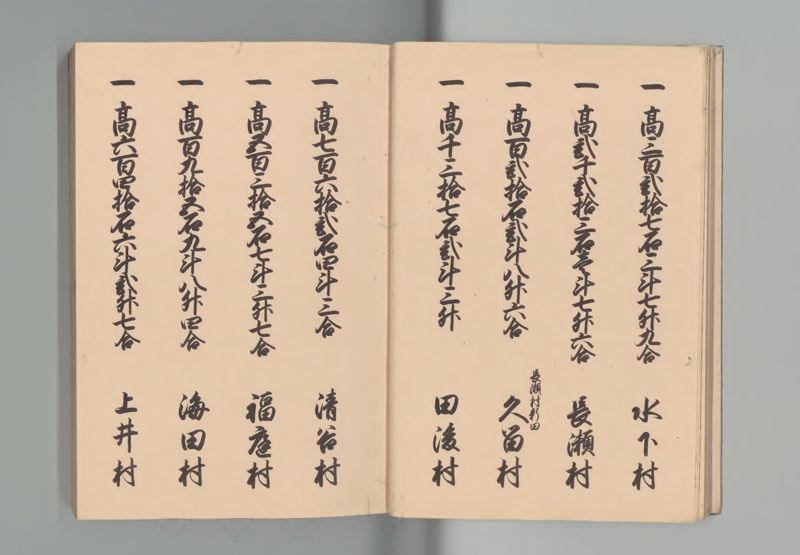 一高三百弐拾七石三斗七升九合 水下村
一高弐千弐拾三石壱斗七升六合 長瀬村
長瀬村新田
一高百弐拾石弐斗八升六合 久留村
一高千三拾七石弐斗三升 田後村
一高七百六拾弐石四斗三合 清谷村
一高五百三拾五石七斗三升七合 福庭村
一高百九拾五石九斗八升四合 海田村
一高六百四拾石六斗弐升七合 上井村